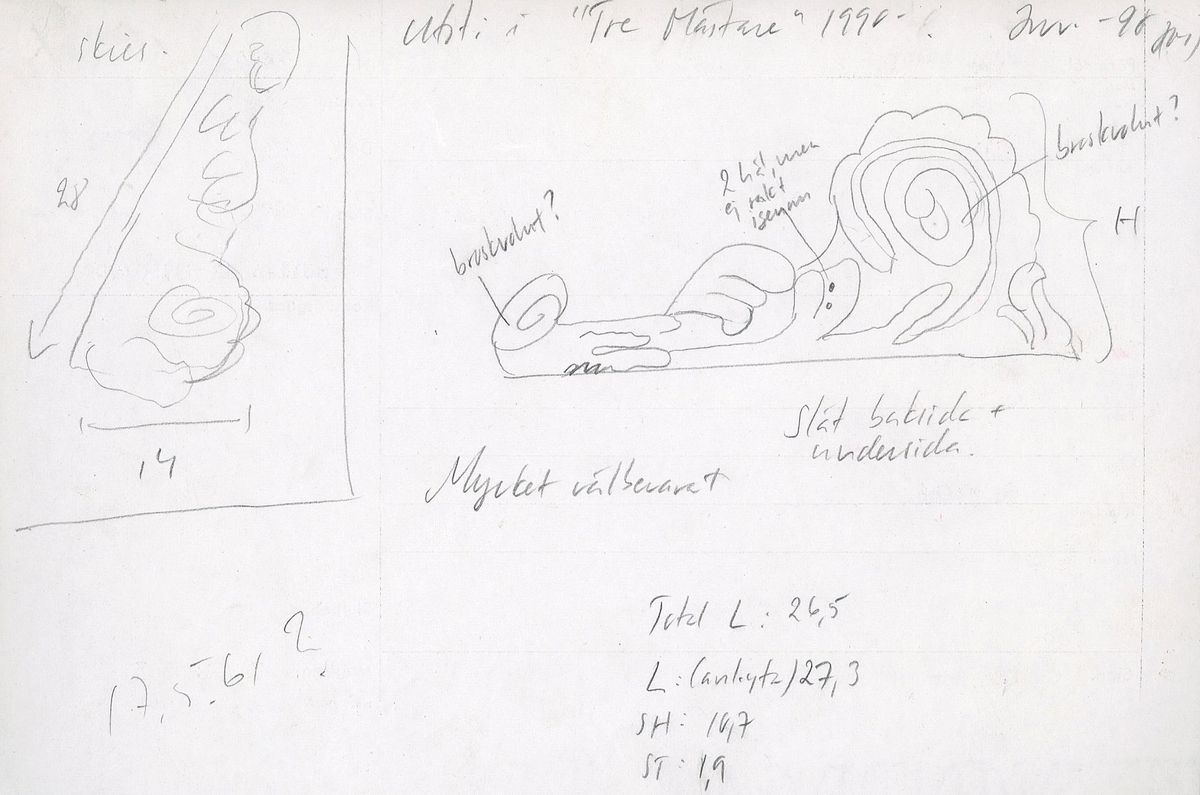 skiss.
Utst. i "Tre Mästare" 1990-
Inv. -98
28
14
broskvolut?
2 hål, men
ej rakt
igenom
broskvolut?
H
Slät baksida +
undersida.
Mycket välbevarat
17.5.61 ?
Total L: 26,5
L: (anlyta) 27,3
SH: 10,7
ST: 1,9